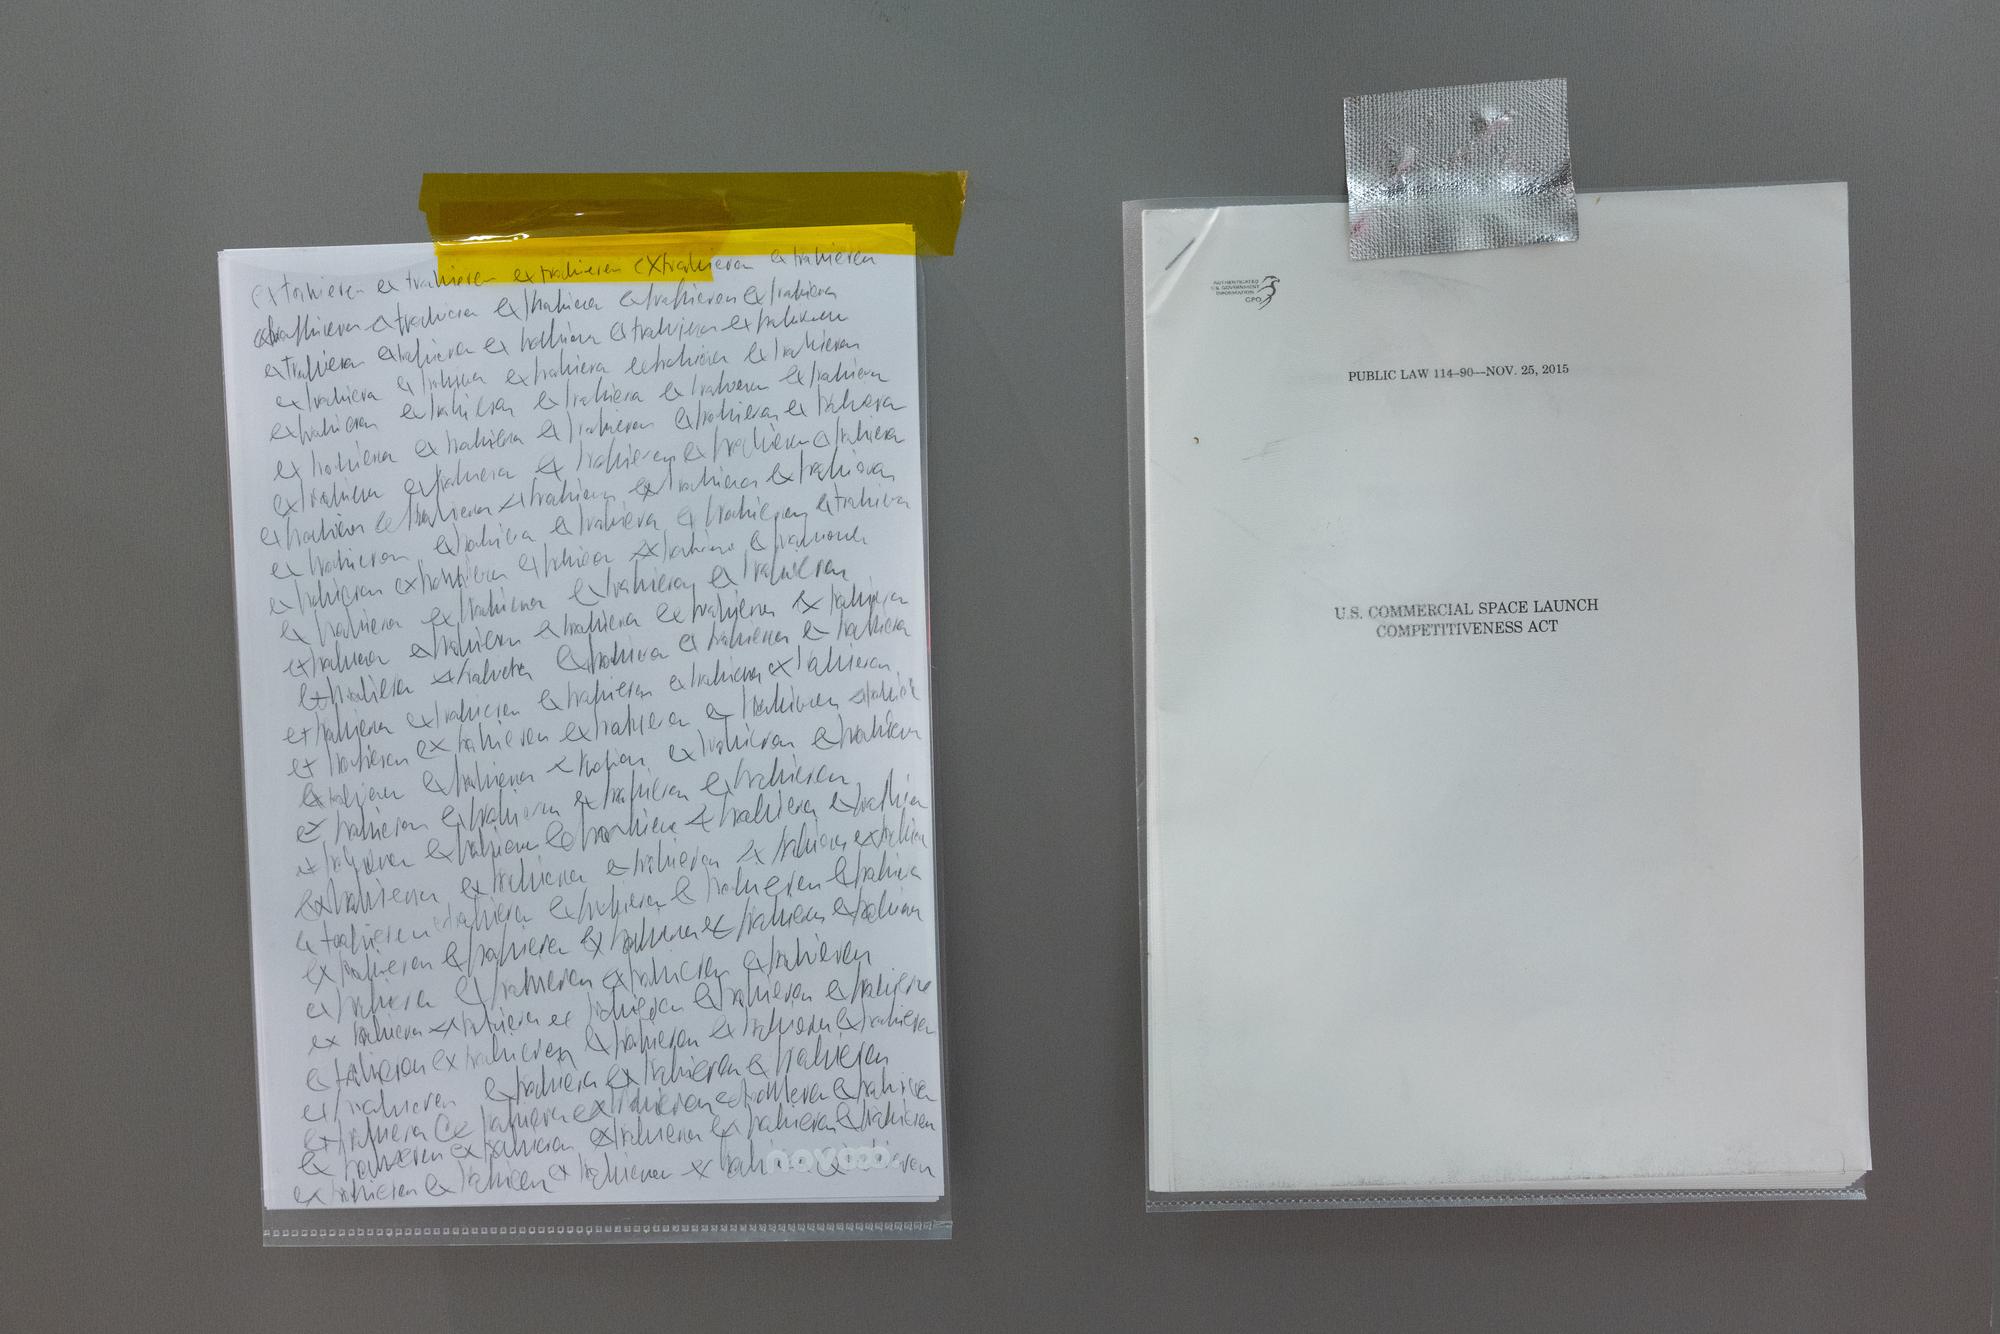 extrahieren extrahieren extrahieren extrahieren extrahieren
extrahieren extrahieren extrahieren extrahieren extrahieren
extrahieren extrahieren extrahieren extrahieren extrahieren
extrahieren extrahieren extrahieren extrahieren extrahieren
extrahieren extrahieren extrahieren extrahieren extrahieren
extrahieren extrahieren extrahieren extrahieren extrahieren
extrahieren extrahieren extrahieren extrahieren extrahieren
extrahieren extrahieren extrahieren extrahieren extrahieren
extrahieren extrahieren extrahieren extrahieren extrahieren
extrahieren extrahieren extrahieren extrahieren extrahieren
extrahieren extrahieren extrahieren extrahieren
extrahieren extrahieren extrahieren extrahieren extrahieren
extrahieren extrahieren extrahieren extrahieren extrahieren
extrahieren extrahieren extrahieren extrahieren extrahieren
extrahieren extrahieren extrahieren extrahieren extrahieren
extrahieren extrahieren extrahieren extrahieren extrahieren
extrahieren extrahieren extrahieren extrahieren
extrahieren extrahieren extrahieren extrahieren extrahieren
extrahieren extrahieren extrahieren extrahieren extrahieren
extrahieren extrahieren extrahieren extrahieren extrahieren
extrahieren extrahieren extrahieren extrahieren extrahieren
extrahieren extrahieren extrahieren extrahieren
extrahieren extrahieren extrahieren extrahieren extrahieren
extrahieren extrahieren extrahieren extrahieren extrahieren
extrahieren extrahieren extrahieren extrahieren
extrahieren extrahieren extrahieren extrahieren extrahieren
extrahieren extrahieren extrahieren extrahieren extrahieren
extrahieren extrahieren extrahieren extrahieren extrahieren
AUTHENTICATED
U.S. GOVERNMENT
INFORMATION
GPO
PUBLIC LAW 114–90—NOV. 25, 2015
U.S. COMMERCIAL SPACE LAUNCH
COMPETITIVENESS ACT